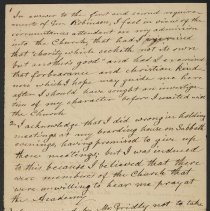 1 In answer to the first and second require-
ment of Geo Robinson, I feel in view of the
circumstances attendant on my admission
into the Church that had I exercised
that charity which seeketh not its own
but another's good and had I examined
that forbearance and christian kind-
ness which I hope may guide me here
after I should have sought an investiga-
tion of my character before I united with
the Church
2 I acknowledge that I did wrong in holding
meetings at my boarding house on Sabbath
evenings, having promised to give up
those meetings, but I was induced to
this because I believed that there
were members of the Church that
were unwilling to hear me pray at
the Academy
Mr Gridly not to take